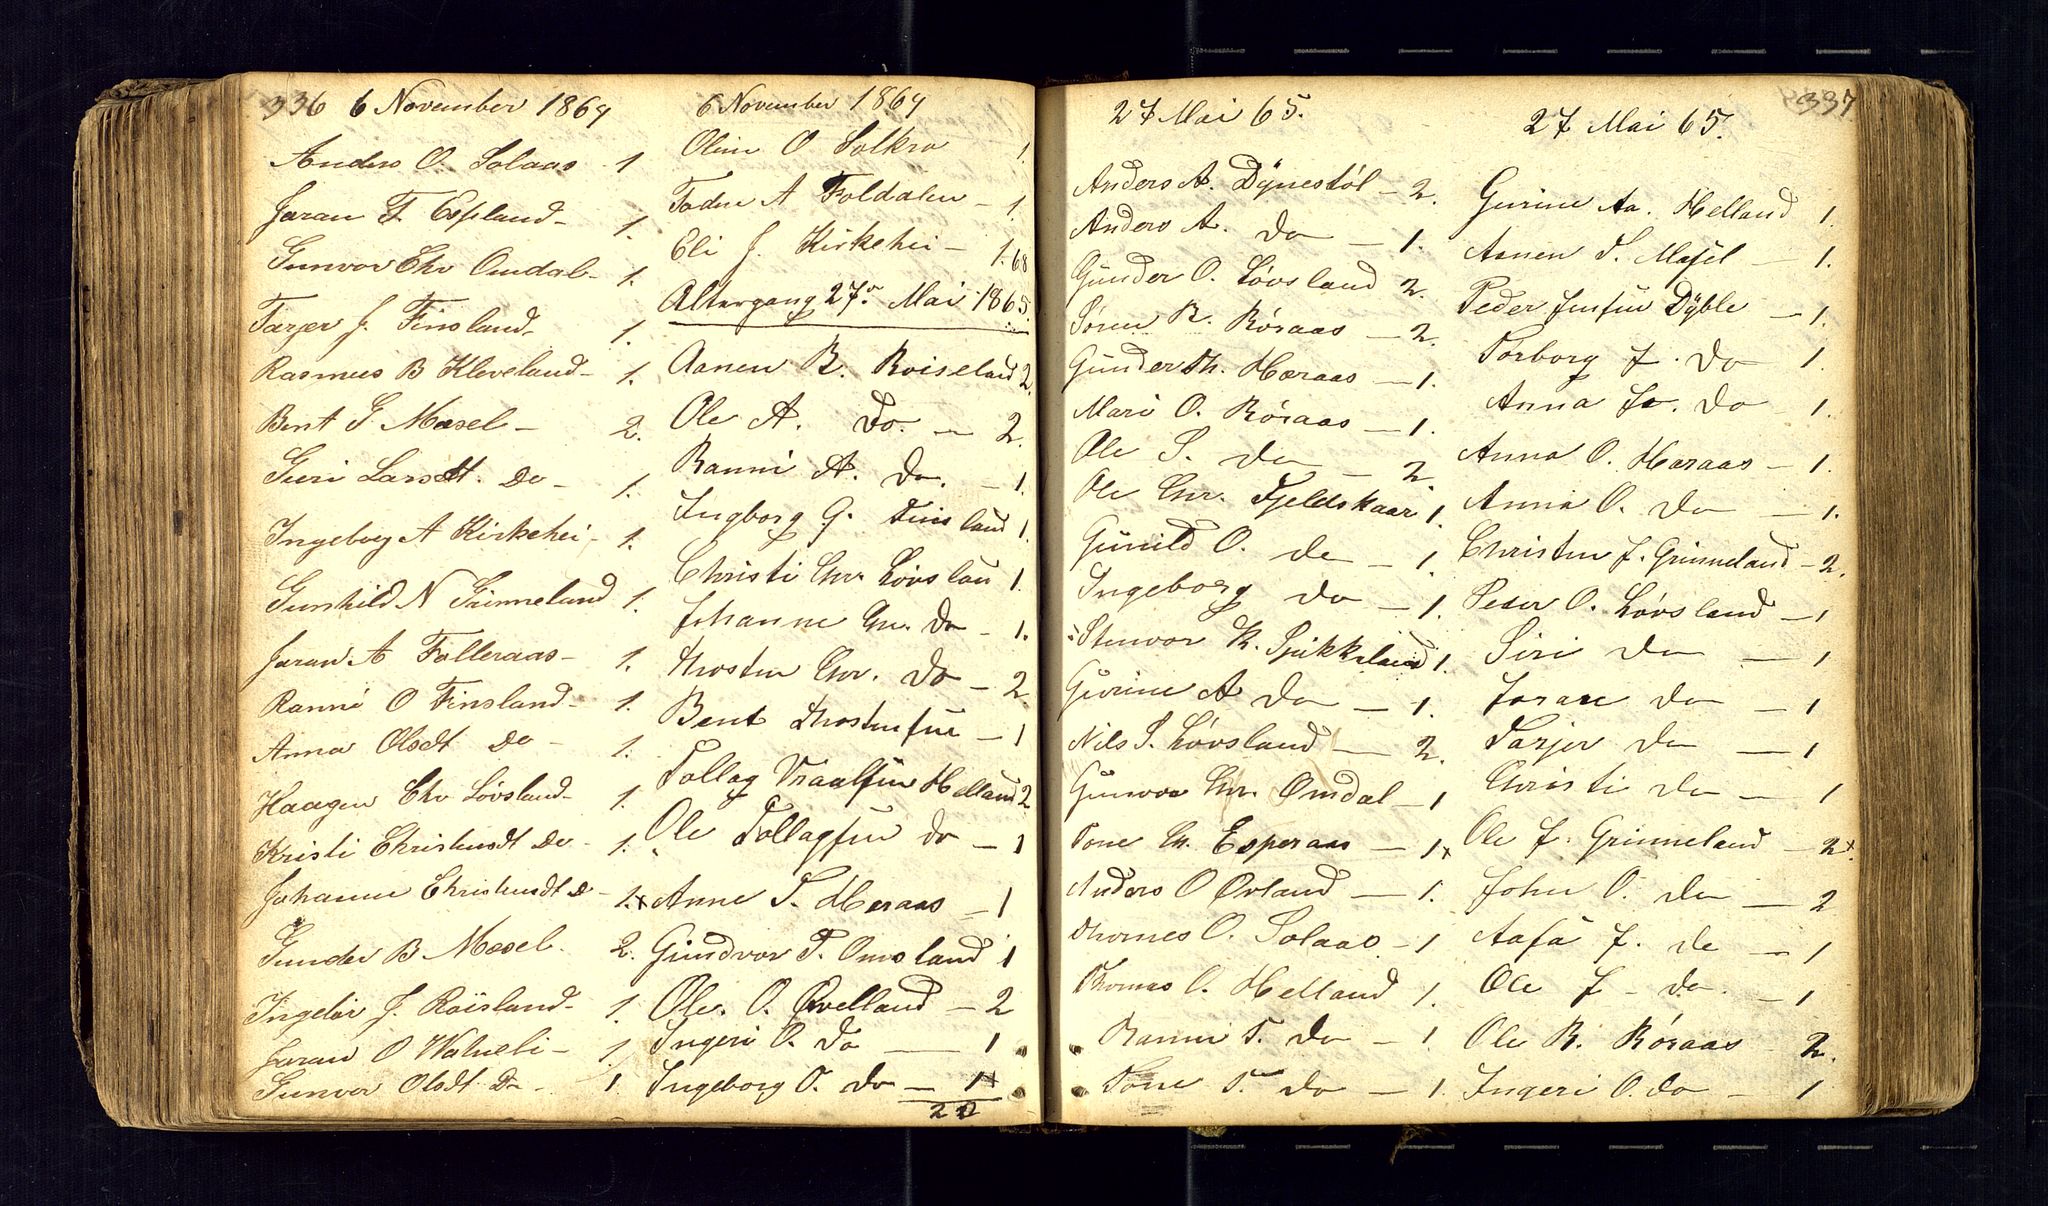 336 6 November 1864
Anders O. Solaas 1.
Jaran T. Espland 1.
Gunvor Chr Omdal 1.
Tarjer J. Finsland 1.
Rasmus B Kleveland 1.
Bent G Mæsel 2.
Guri Larsdt. Do 1.
Ingeborg A Kirkehei 1.
Gunhild N Grinneland 1.
Jaran A Falleraas 1.
Ranni O Finsland 1.
Anna Olsdt Do 1.
Haagen Chr Løvsland 1.
Kristi Christensdt Do 1.
Johanne Christensdt Do 1.x
Gunder B Mæsel 2.
Ingebor J. Røisland 1.
Jaran O 1.
Gunvor Olsdt Do 1.
6 November 1864
Oline O Solkra 1.
Todne A Foldalen 1.
Eli J Kirkehei 1. 68
Altergang 27de Mai 1865.
Aanen B. Roiseland 2.
Ole A. Do. 2.
Ranni A. Do. 1.
Ingborg G. Finsland 1.
Christi Chr. Løvslan 1
Johanne Chr. Do 1.
Thosten Chr. Do 2
Bent Thostensen 1
Tollag Vraalsen Helland 2
Ole Tollagsen Do 1
Anne T. Heraas 1
Gundvor T. Omsland 1
Ole. O. Øvelland 2
Ingeri O. Do 1
Ingeborg O. Do 1x
20
27 Mai 65.
Anders A. Dÿnestøl 2.
Anders A. Do 1.
Gunder O. Løvsland 2.
Søren R. Røraas 2.
Gunder Th. Hæraas 1.
Mari O. Røraas 1.
Ole S. Do 2.
Ole Chr. Fjeldskaar 1.
Gunild O. Do 1.
Ingeborg Do 1.
Stenvor K. 1.
Gurine A Do 1.
Nils S. Løvsland 2.
Gunvor Chr. Omdal 1
Tone Ch. Esperaas 1x
Anders O Øvland 1.
Thomes O. Solaas 1
Thomas O. Helland 1.
Ranni T. Do 1.
Tone T. Do 1.
337
27 Mai 65.
Gurine Aa. Helland 1.
Aanen S. Mæsel 1.
Peder Jensen Dÿble 1.
Torborg J. Do 1.
Anna Jo. Do 1.
Anna O. Haraas 1.
Anna O. Do 1.
Christen J. Grinneland 2.
Peder O. Løvsland 1
Siri Do 1
Joran Do 1
Tarjer Do 1
Christi Do 1
Ole J. Grinneland 2x.
John O. Do 2
Aasa J. Do 1
Ole J Do. 1
Ole R. Røraas 2.
Ingeri O. Do 1